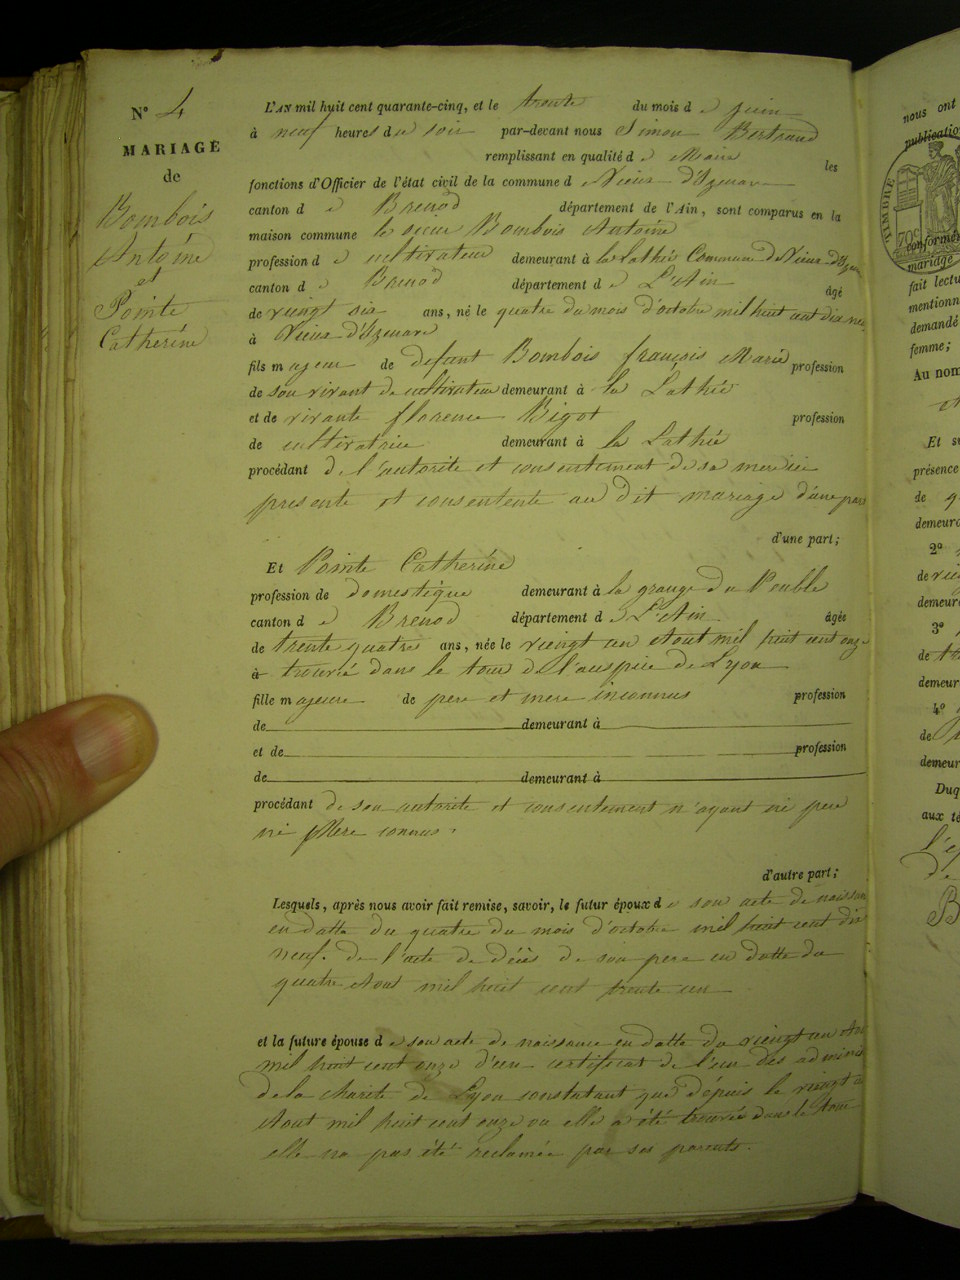 N° 4
MARIAGE
de
Bombois
Antoine
et
Pointe
Catherine
L'AN mil huit cent quarante-cinq, et le trente du mois de juin
à neuf heures du soir par-devant nous Simon Bertrand
remplissant en qualité de Maire les
fonctions d'Officier de l'état civil de la commune de Vieux d'Izenave
canton de Brenod département de l'Ain, sont comparus en la
maison commune le sieur Bombois Antoine
profession de cultivateur demeurant à la Lathié Commune de Vieux d'Izenave
canton de Brenod département de L'Ain âgé
de vieingt six ans, né le quatre du mois d'octobre mil huit cent dix neuf
à Vieux d'Izenave
fils majeur de défunt Bombois françois Marie profession
de son vivant de cultivateur demeurant à la Lathié
et de vivante florence Bigot profession
de cultivatrice demeurant à la Lathié
procédant de l'autorité et consentement de sa mere ici
presente et consentente au dit mariage d'une part
d'une part;
Et Pointe Catherine
profession de domestique demeurant à la grange du Peuble
canton de Brenod département de L'Ain âgée
de trente quatre ans, née le vieingt un Aout mil huit cent onze
à trouvée dans le tour de l'auspice de Lyon
fille majeure de pere et mere inconnus profession
de demeurant à
et de profession
de demeurant à
procédant de son autorité et consentement n'ayant ni pere
ni Mere connus.
d'autre part;
Lesquels, après nous avoir fait remise, savoir, le futur époux de son acte de naissance
en datte du quatre du mois d'octobre mil huit cent dix
neuf. de l'acte de décès de son pere en datte du
quatre Aout mil huit cent trente un
et la future épouse de son acte de naissance en datte du vieingt un Aout
mil huit cent onze d'un certificat de l'un des adminis
de la charité de Lyon constatant que depuis le vieingt
Aout mil huit cent onze ou elle a été trouvée dans le tour
elle na pas été reclamée par ses parents.
nous ont
publication
TIMBRE
conformém
mariage
fait lectu
mentionn
demandé
femme;
Au nom
Et su
présence
de
demeura
2°
de
demeura
3°
de
demeur
4°
de
demeur
Duq
aux té